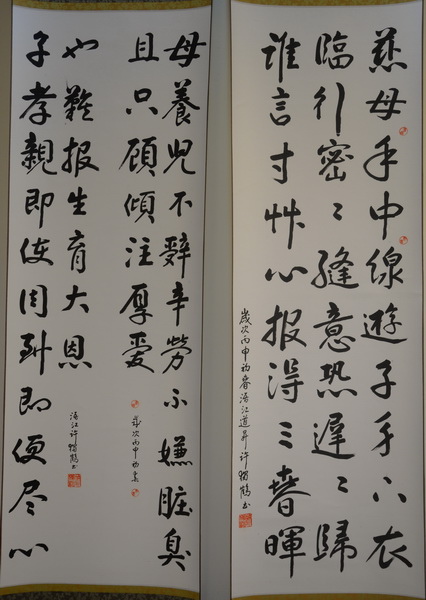 慈母手中線遊子身上衣
臨行密〻縫意恐遲〻歸
誰言寸艸心報得三春暉
歲次丙申初春浯江道昇許獨鶴書
母養兒不辭辛勞不嫌脏臭
且只顧傾注厚愛
歲次丙申初春
子孝親即使周到即便尽心
也難報生育大恩
浯江許獨鶴書